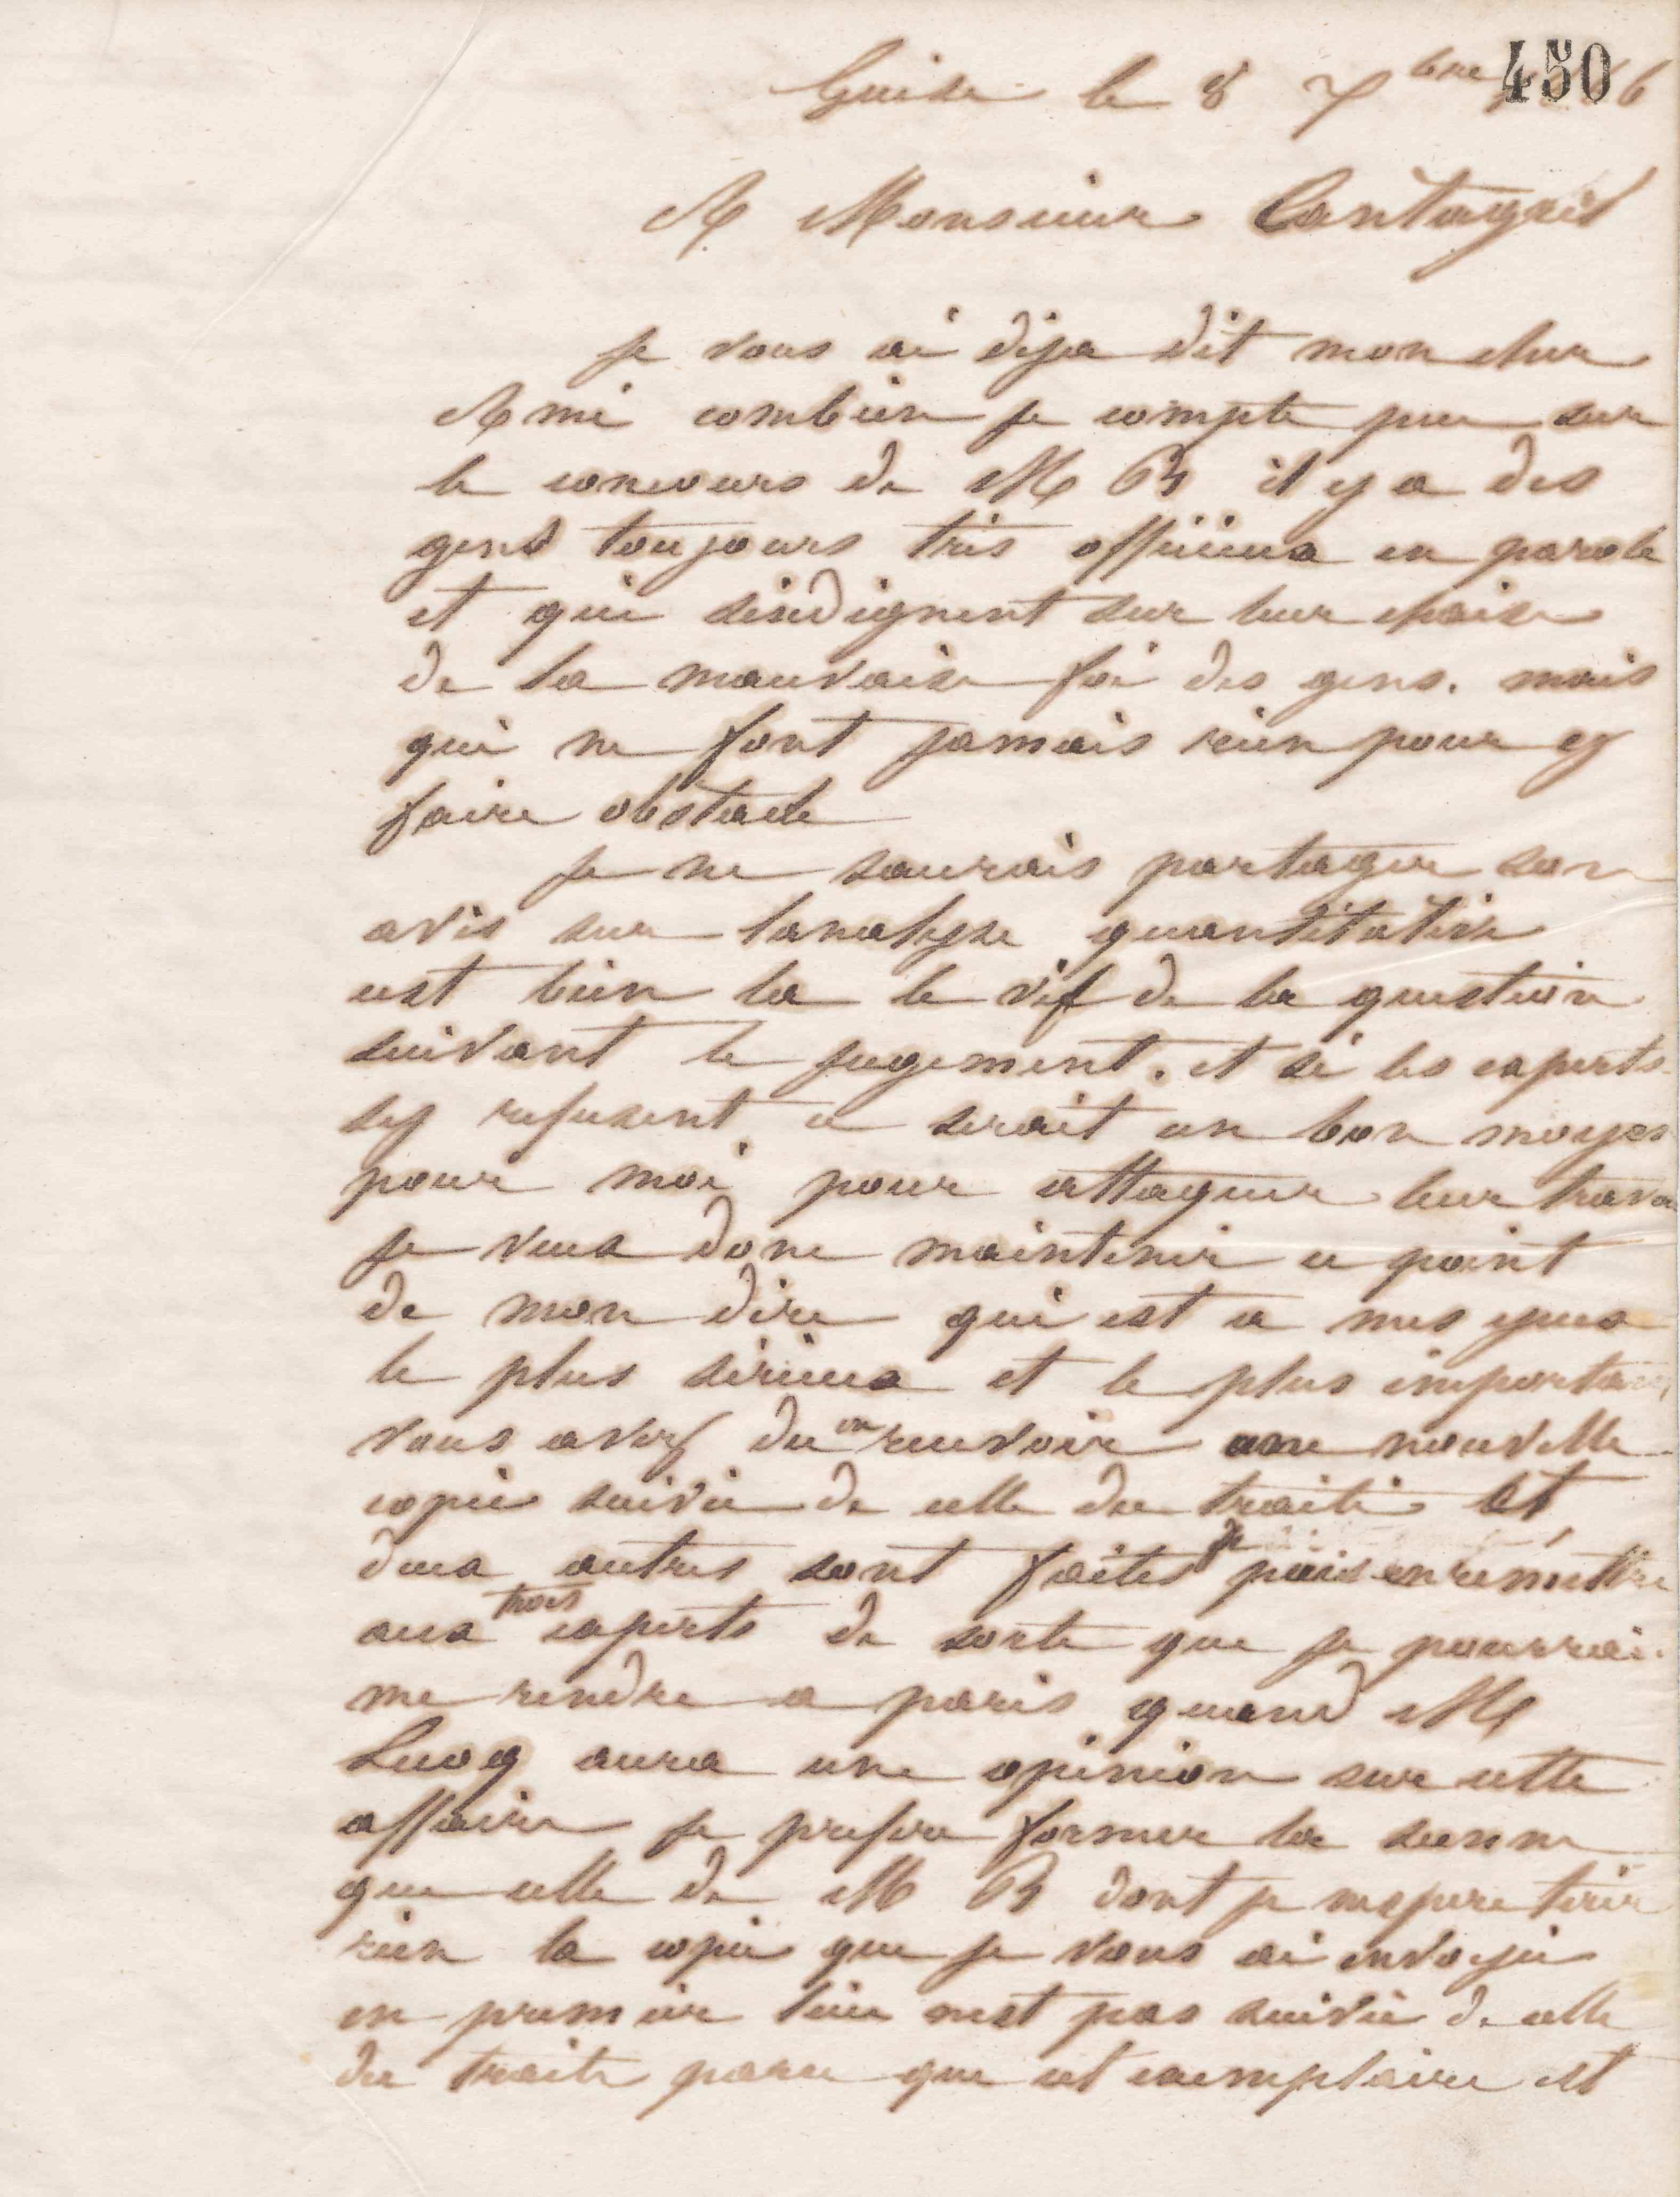 450
Guise le 8 7bre 6
A Monsieur Cantagrel
Je vous ai deja dit mon cher
Ami combien je compte peu sur
le concours de M B il y a des
gens toujours tres officieux en parole
et qui sindignent sur leur chaise
de la mauvaise foi des gens. mais
qui ne font jamais rien pour y
faire obstacle
Je ne saurais partager son
avis sur lanalyse quantitative
cest bien la le vif de la question
suivant le jugement. et si les experts
sy refusent ce serait un bon moyen
pour moi pour attaquer leur
je veux donc maintenir ce point
de mon dire qui est a mes yeux
le plus serieux et le plus
vous avez du en recevoir une nouvelle
copie suivie de celle du traité et
deux autres sont faites je puis en remettre
aux trois experts de sorte que je pourrai
me rendre a paris quand M
aura une opinion sur cette
affaire je prefere former la sienne
que celle de M B dont je nespere tirer
rien la copie que je vous ai envoyée
en premier lieu nest pas suivie de celle
du traite parce que cet exemplaire est